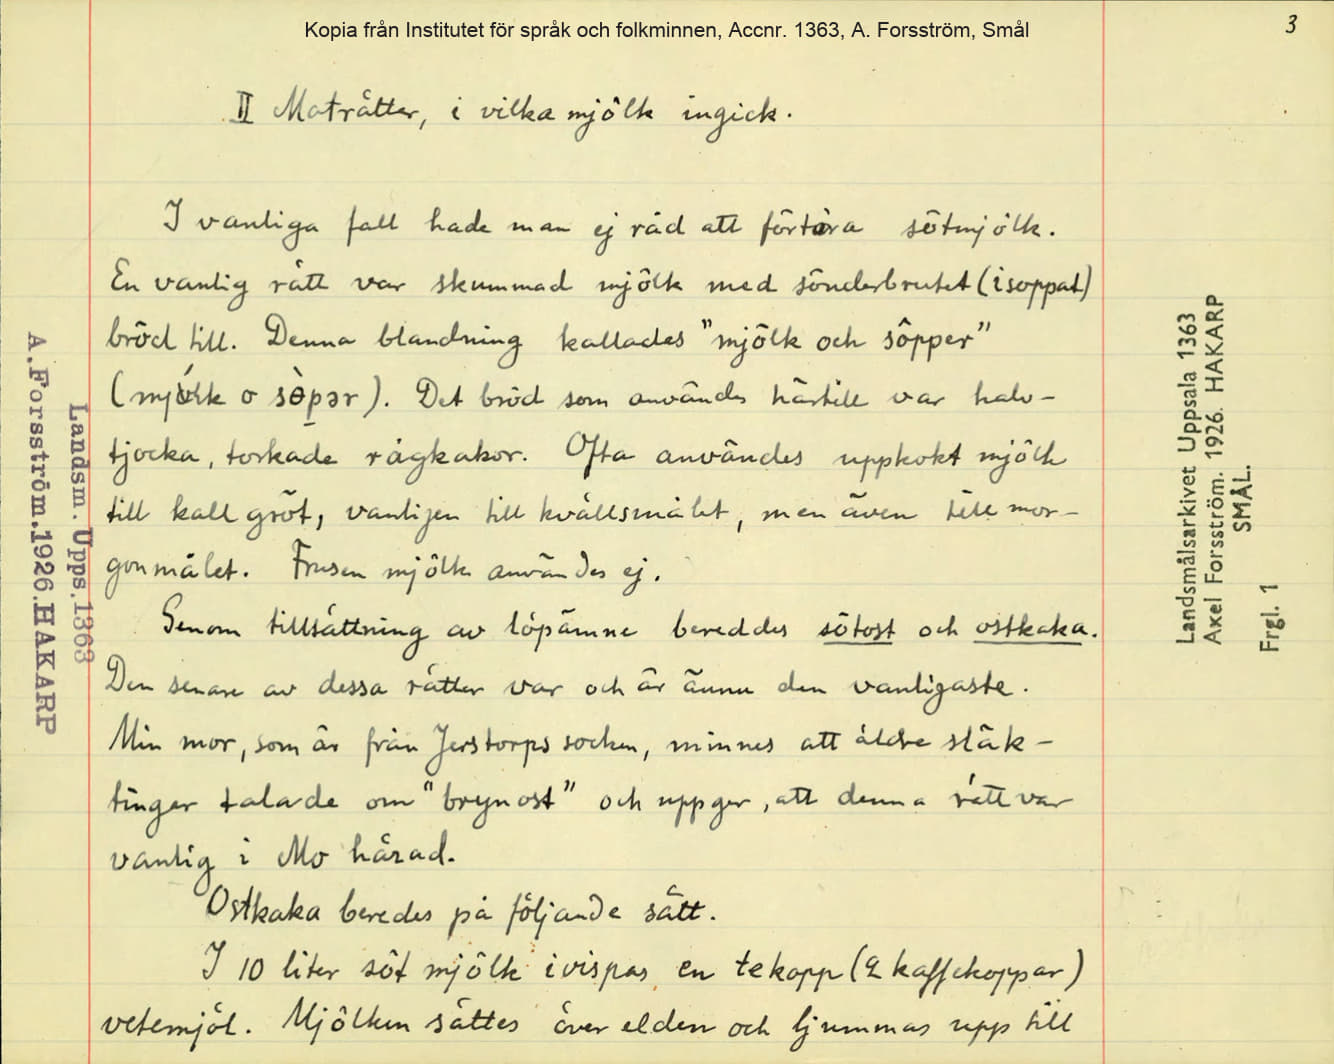 Kopia från Institutet för språk och folkminnen, Accnr. 1363, A. Forsström, Smål
3
II Maträtter, i vilka mjölk ingick.
I vanliga fall hade man ej råd att förtära sötmjölk.
En vanlig rätt var skummad mjölk med sönderbrutet (isoppat)
bröd till. Denna blandning kallades "mjölk och söpper"
(mjölk o sɵ̀pər). Det bröd som användes härtill var halv-
tjocka, torkade rågkakor. Ofta användes uppkokt mjölk
till kall gröt, vanligen till kvällsmålet, men även till mor-
gonmålet. Frusen mjölk användes ej.
Genom tillsättning av löpämne bereddes sötost och ostkaka.
Den senare av dessa rätter var och är ännu den vanligaste.
Min mor, som är från Jerstorps socken, minnes att äldre släk-
tingar talade om "brynost" och uppger, att denna rätt var
vanlig i Mo härad.
Ostkaka beredes på följande sätt.
I 10 liter söt mjölk ivispas en tekopp (2 kaffekoppar)
vetemjöl. Mjölken sättes över elden och ljummas upp till
Landsm. Upps. 1363
A. Forsström. 1926. HAKARP
Landsmålsarkivet Uppsala 1363
Axel Forsström. 1926. HAKARP
SMÅL.
Frgl. 1